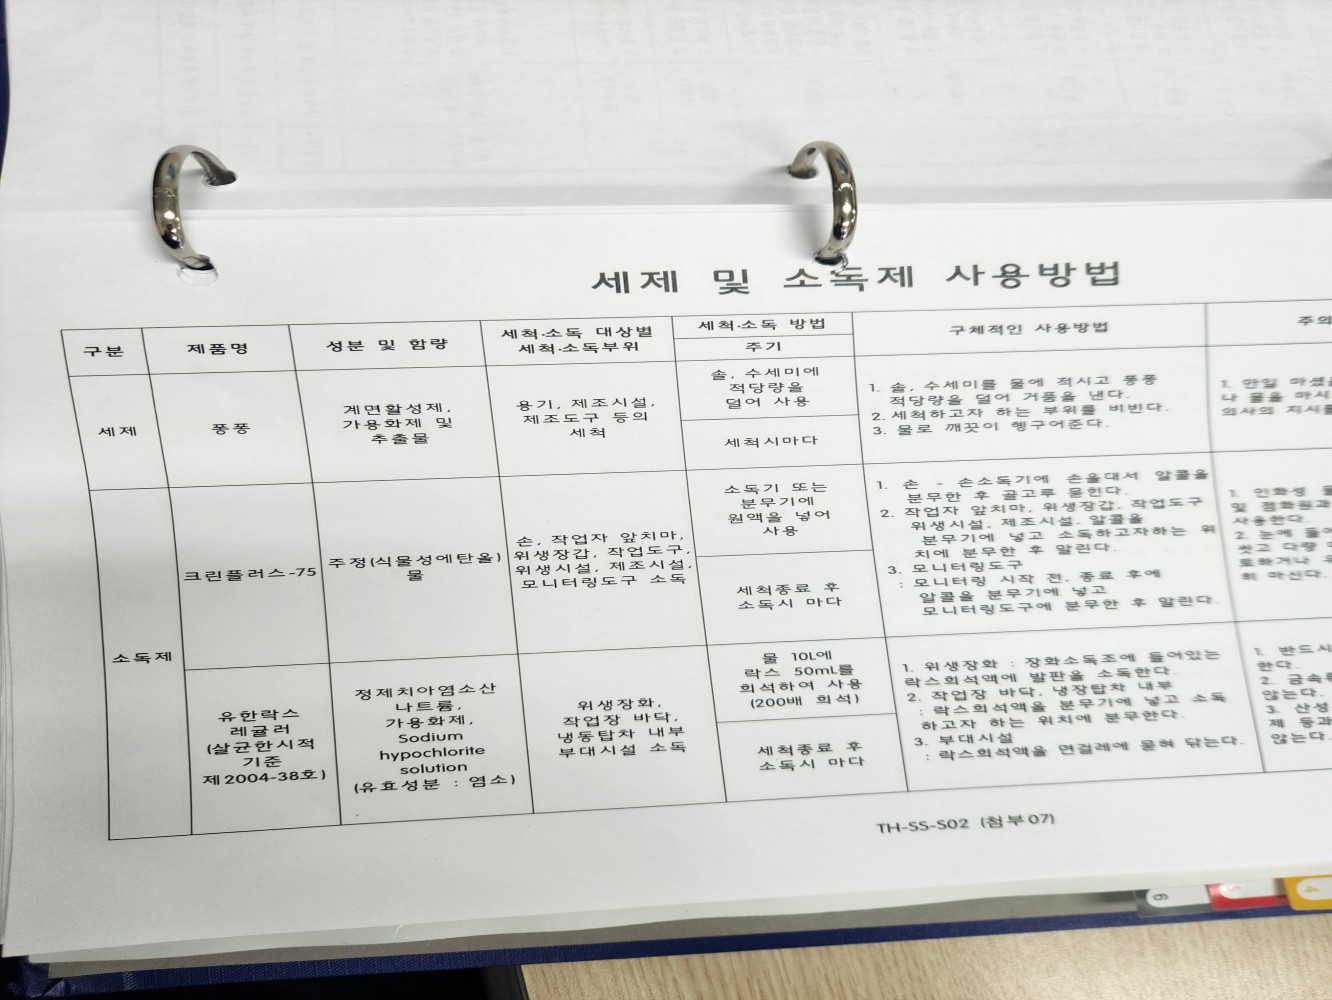 세제 및 소독제 사용방법
구분
제품명
성분 및 함량
세척·소독 대상별
세척·소독부위
세척·소독 방법
주기
구체적인 사용방법
주의
세제
퐁퐁
계면활성제,
가용화제 및
추출물
용기, 제조시설,
제조도구 등의
세척
솔, 수세미에
적당량을
덜어 사용
세척시마다
1. 솔, 수세미를 물에 적시고 퐁퐁
적당량을 덜어 거품을 낸다.
2. 세척하고자 하는 부위를 비빈다.
3. 물로 깨끗이 헹구어준다.
1. 만일 마셨을
나 물을 마시
의사의 지시를
소독제
크린플러스-75
주정(식물성에탄올)
물
손, 작업자 앞치마,
위생장갑, 작업도구,
위생시설, 제조시설,
모니터링도구 소독
소독기 또는
분무기에
원액을 넣어
사용
세척종료 후
소독시 마다
1. 손 - 손소독기에 손을대서 알콜을
분무한 후 골고루 묻힌다.
2. 작업자 앞치마, 위생장갑, 작업도구
위생시설, 제조시설, 알콜을
분무기에 넣고 소독하고자하는 위
치에 분무한 후 말린다.
3. 모니터링도구
: 모니터링 시작 전, 종료 후에
알콜을 분무기에 넣고
모니터링도구에 분무한 후 말린다.
1. 인화성 물
및 점화원과
사용한다.
2. 눈에 들어
씻고 다량
토하거나
히 마신다.
유한락스
레귤러
(살균한시적
기준
제2004-38호)
정제치아염소산
나트륨,
가용화제,
Sodium
hypochlorite
solution
(유효성분 : 염소)
위생장화,
작업장 바닥,
냉동탑차 내부
부대시설 소독
물 10L에
락스 50mL를
희석하여 사용
(200배 희석)
세척종료 후
소독시 마다
1. 위생장화 : 장화소독조에 들어있는
락스희석액에 발판을 소독한다.
2. 작업장 바닥, 냉장탑차 내부
: 락스희석액을 분무기에 넣고 소독
하고자 하는 위치에 분무한다.
3. 부대시설
: 락스희석액을 면걸레에 묻혀 닦는다.
1. 반드시
한다.
2. 금속류
않는다.
3. 산성
제 등과
않는다.
TH-SS-S02 (첨부07)
6
5
4